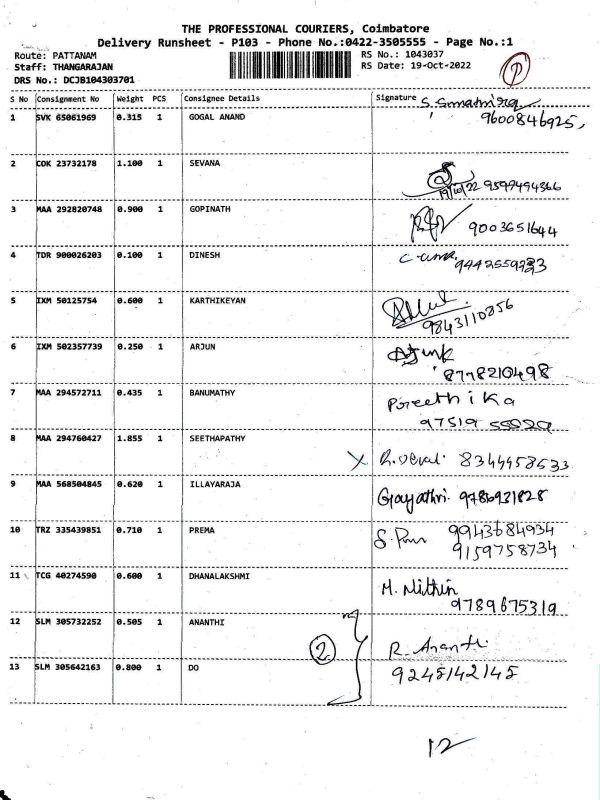 THE PROFESSIONAL COURIERS, Coimbatore
Delivery Runsheet - P103 - Phone No.:0422-3505555 - Page No.:1
Route: PATTANAM RS No.: 1043037
Staff: THANGARAJAN RS Date: 19-Oct-2022
DRS No.: DCJB104303701
1
S No Consignment No Weight PCS Consignee Details Signature
1 SVK 65061969 0.315 1 GOGAL ANAND 9600846925,
2 COK 23732178 1.100 1 SEVANA 19/10/22 9599494366
3 MAA 292820748 0.900 1 GOPINATH 9003651644
4 TDR 900026203 0.100 1 DINESH C-uma
5 IXM 50125754 0.600 1 KARTHIKEYAN 9843110856
6 IXM 502357739 0.250 1 ARJUN 8778210498
7 MAA 294572711 0.435 1 BANUMATHY Preethika
97519
8 MAA 294760427 1.855 1 SEETHAPATHY X 8344458533
9 MAA 568504845 0.620 1 ILLAYARAJA Gayathri 9786931828
10 TRZ 335439851 0.710 1 PREMA 9943684934
9159758734
11 TCG 40274590 0.600 1 DHANALAKSHMI M. Nithin
9789675319
12 SLM 305732252 0.505 1 ANANTHI R. Ananthi
2
13 SLM 305642163 0.800 1 DO 9245142145
12